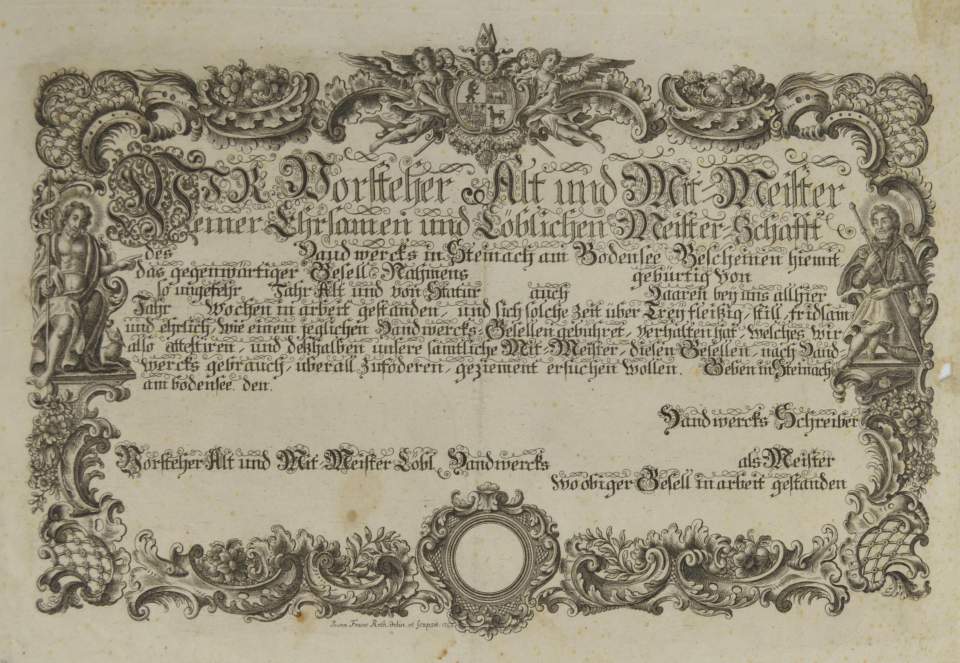 WIR Vorsteher Alt und Mit-Meister
einer Ehrsamen und Löblichen Meister-Schafft
des Handwercks in Steinach am Bodensee Bescheinen hiemit
das gegenwärtiger Gesell Nahmens gebürtig von
so ungefehr Jahr Alt und von Statur auch Haaren bey uns allhier
Jahr Wochen in arbeit gestanden, und sich solche Zeit über Trey fleißig, still, fridsam
und ehrlich, wie einem jeglichen Handwercks-Gesellen gebühret, verhalten hat, welches wir
also attestiren, und deßhalben unsere sämtliche Mit-Meister, diesen Gesellen, nach Hand
wercks gebrauch, überall zuföderen, geziement ersuchen wollen. Geben in Steinach
am bodensee den.
Handwercks Schreiber
Vorsteher Alt und Mit-Meister Löbl. Handwercks als Meister
wo obiger Gesell in arbeit gestanden
Franc Roth. delin. et sculpsit